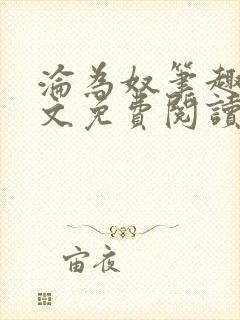 淪為奴筆趣
文免費閱讀
宙夜